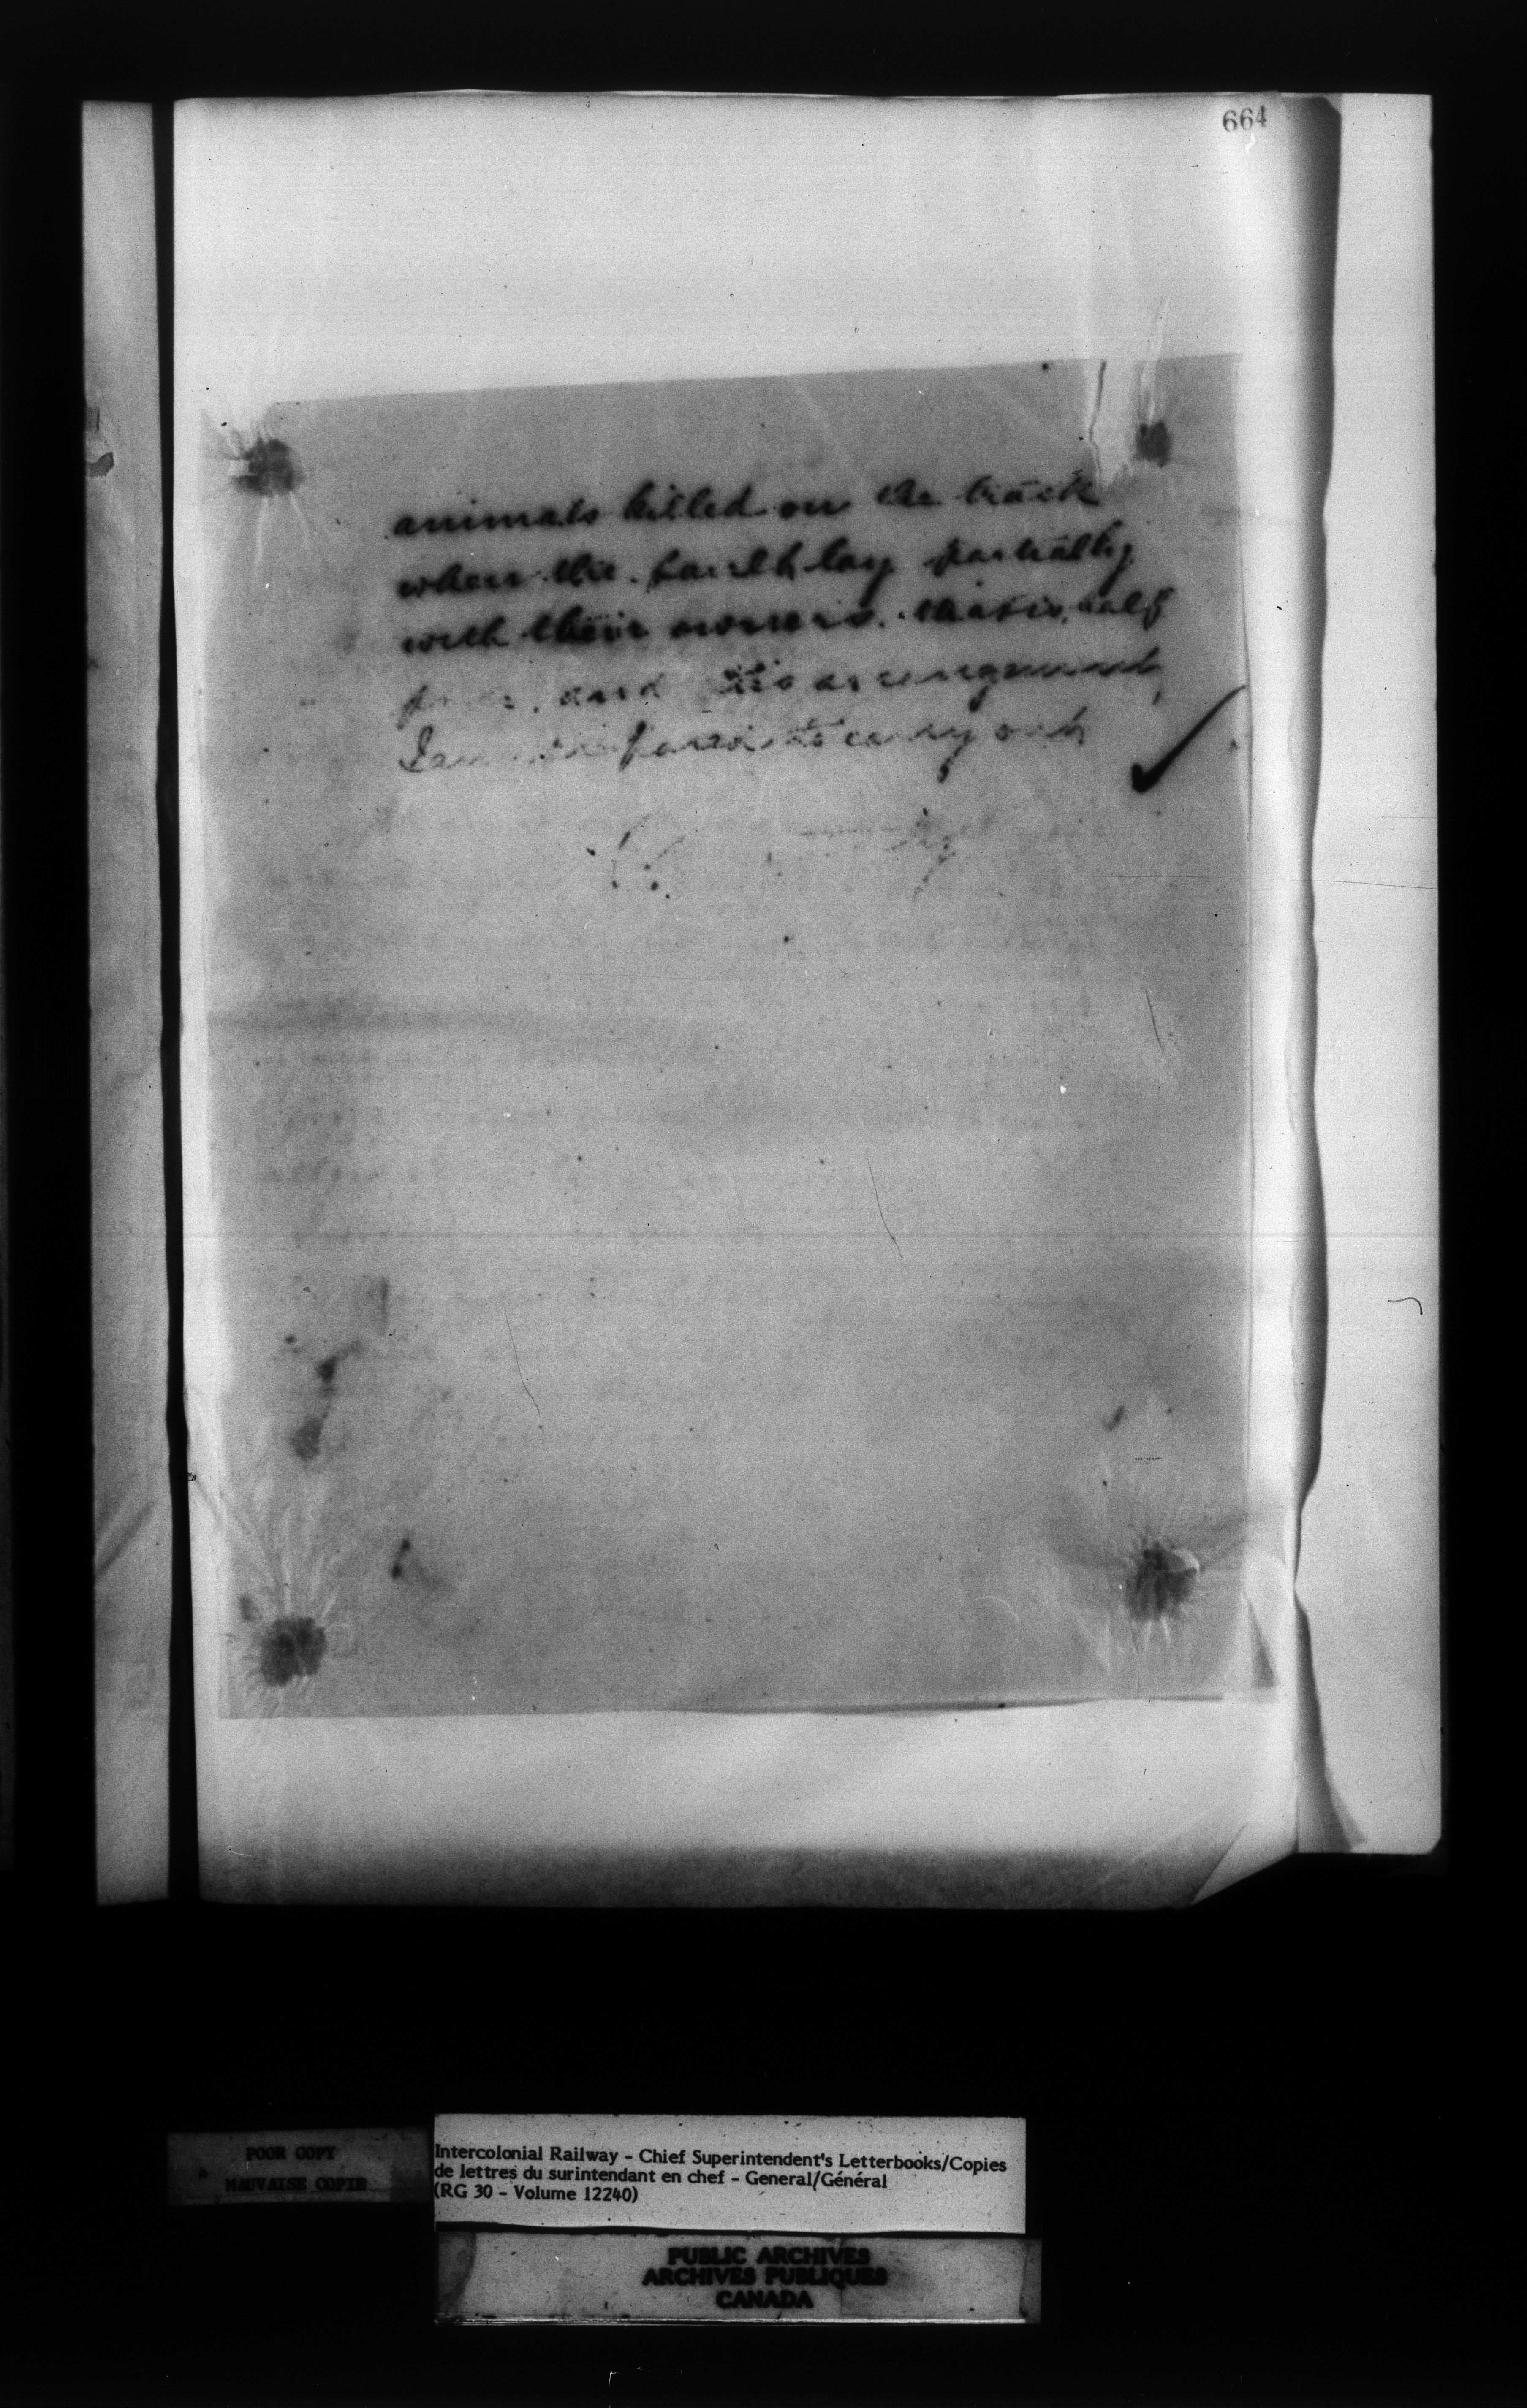 664
animals killed on the track
when the fault lay partially
with their owners. that is, half
and this arrangement
I am prepared to carry out
POOR COPY
MAUVAISE COPIE
Intercolonial Railway - Chief Superintendent's Letterbooks/Copies
de lettres du surintendant en chef - General/Général
(RG 30 - Volume 12240)
PUBLIC ARCHIVES
ARCHIVES PUBLIQUES
CANADA